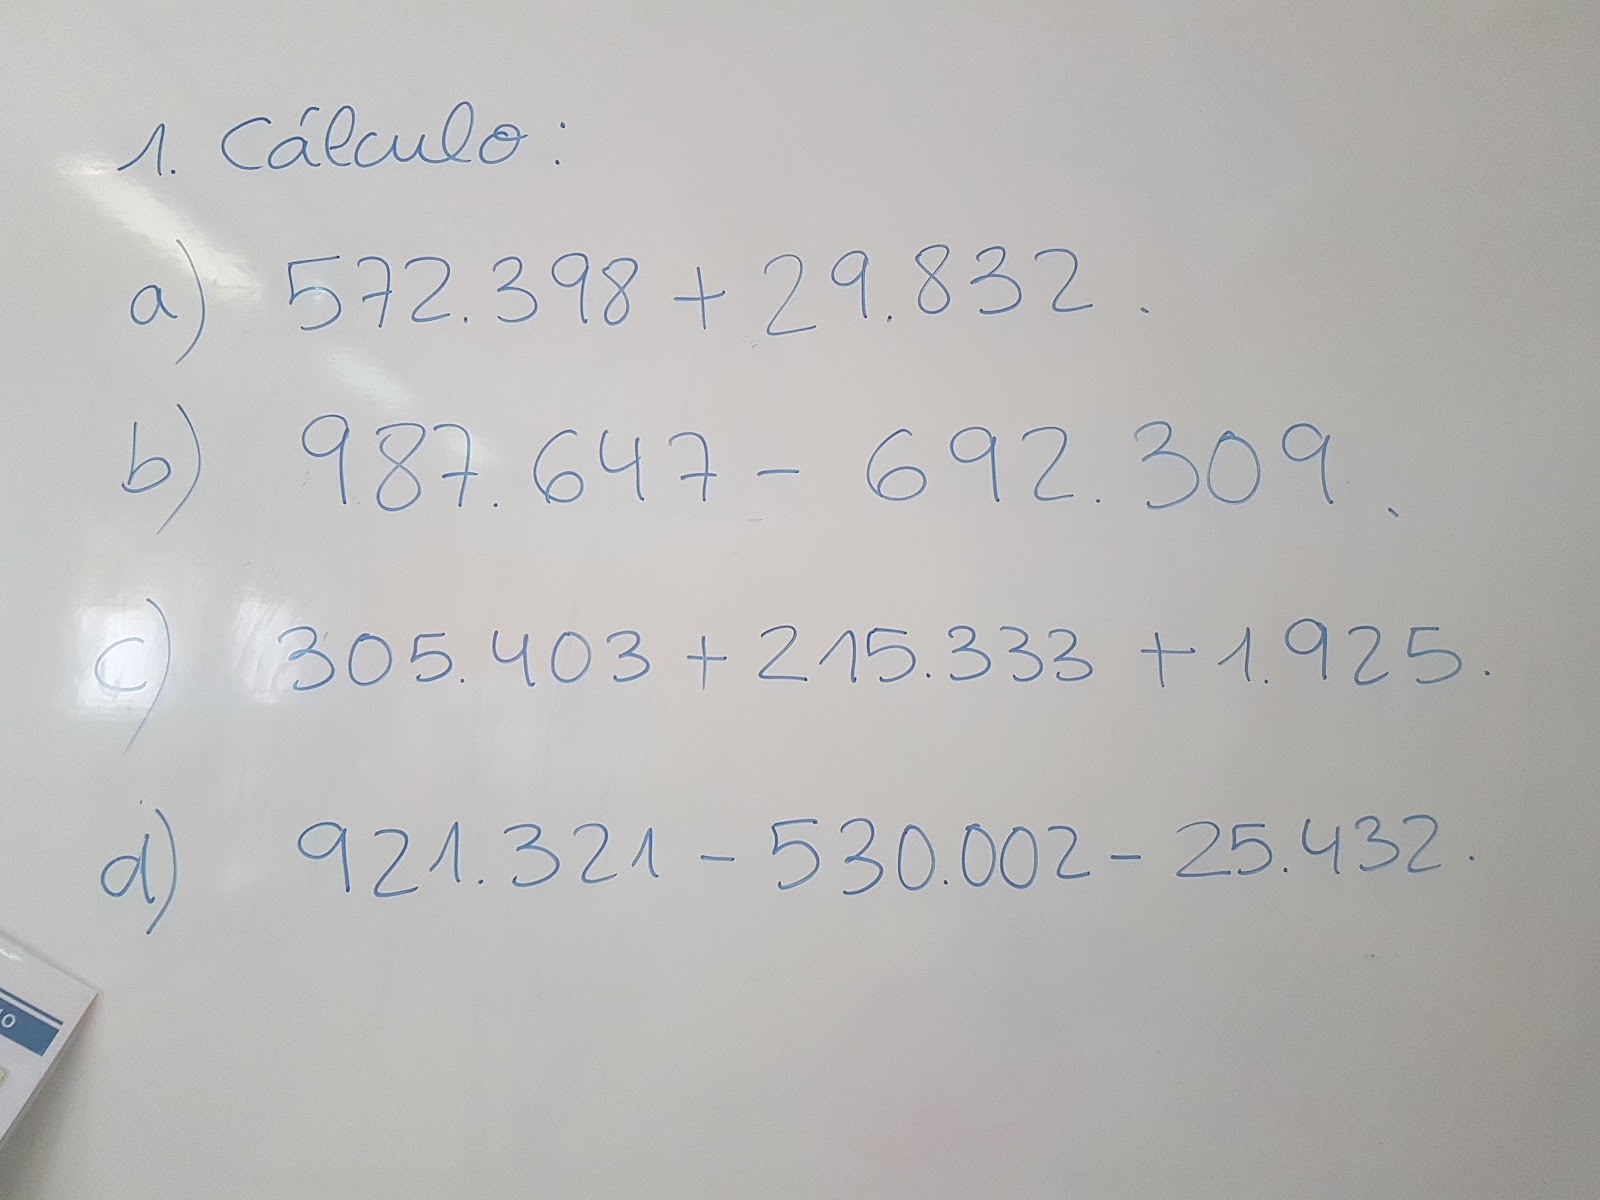 1. Cálculo:
a) 572.398 + 29.832.
b) 987.647 - 692.309.
c) 305.403 + 215.333 + 1.925.
d) 921.321 - 530.002 - 25.432.